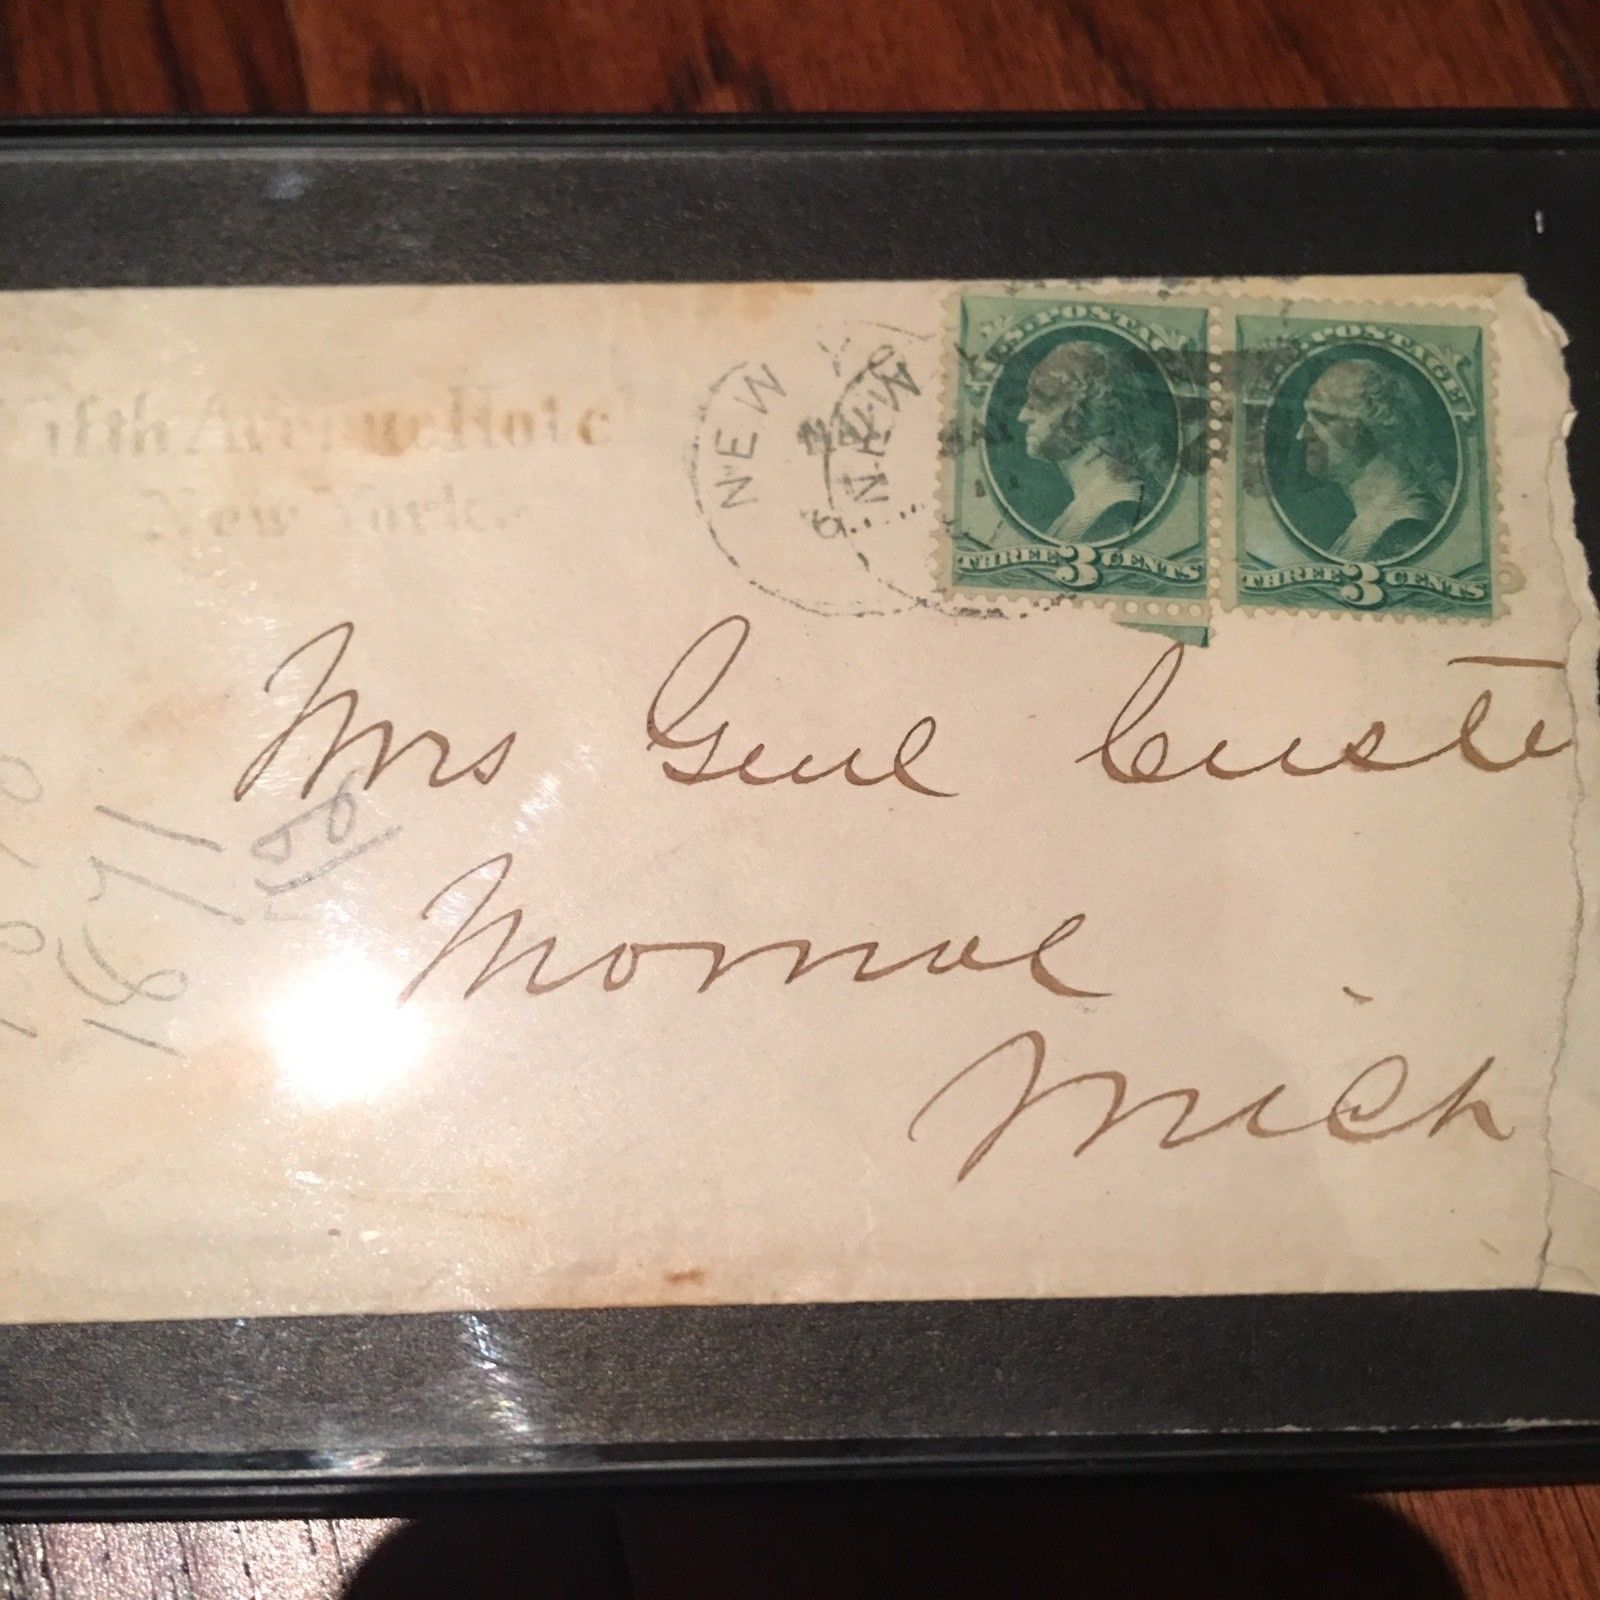 Fifth Avenue Hotel
New York.
NEW
NEW
U.S. POSTAGE
THREE 3 CENTS
U.S. POSTAGE
THREE 3 CENTS
Mrs Genl Custe
Monroe
Mich
1871